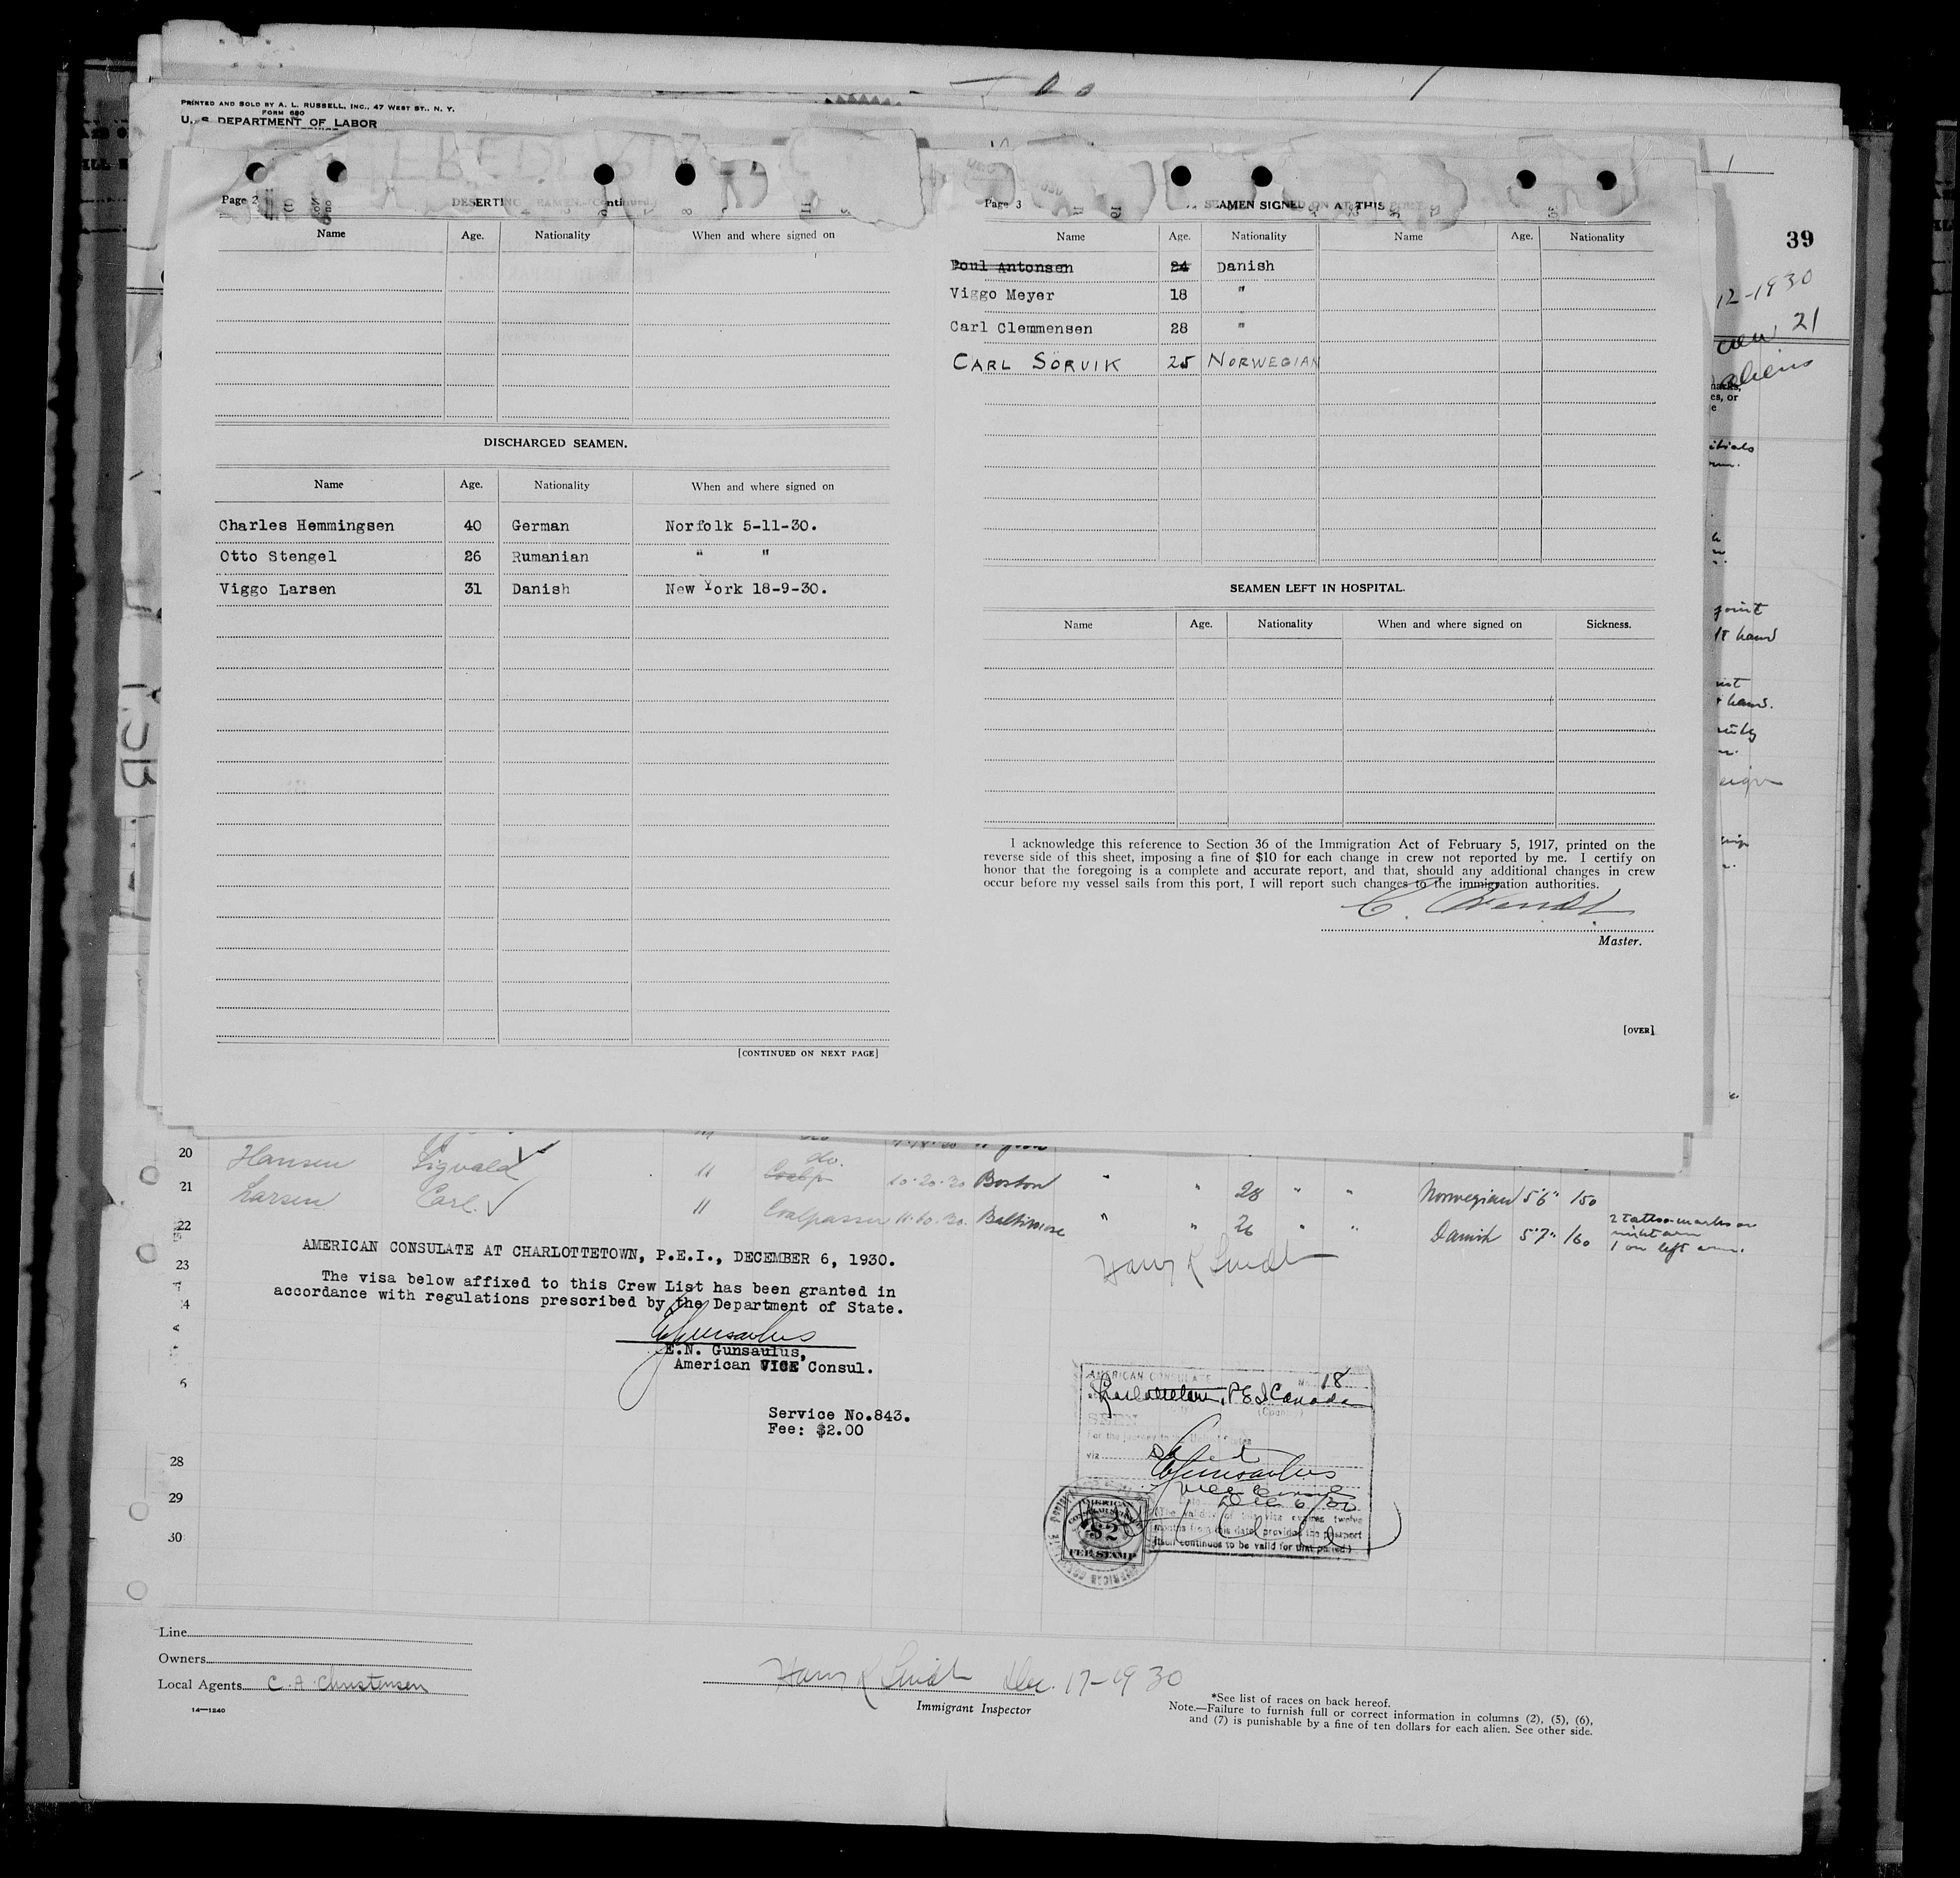 PRINTED AND SOLD BY A. L. RUSSELL, INC., 47 WEST ST., N. Y.
FORM 680
U. S. DEPARTMENT OF LABOR
39
12-1930
crew 21
aliens
Page 2
DESERTING SEAMEN.—(Continued.)
Name Age. Nationality When and where signed on
DISCHARGED SEAMEN.
Name Age. Nationality When and where signed on
Charles Hemmingsen 40 German Norfolk 5-11-30.
Otto Stengel 26 Rumanian " "
Viggo Larsen 31 Danish New York 18-9-30.
[CONTINUED ON NEXT PAGE]
Page 3
SEAMEN SIGNED ON AT THIS PORT.
Name Age. Nationality Name Age. Nationality
Poul Antonsen 24 Danish
Viggo Meyer 18 "
Carl Clemmensen 28 "
CARL SÖRVIK 25 NORWEGIAN
SEAMEN LEFT IN HOSPITAL.
Name Age. Nationality When and where signed on Sickness.
I acknowledge this reference to Section 36 of the Immigration Act of February 5, 1917, printed on the
reverse side of this sheet, imposing a fine of $10 for each change in crew not reported by me. I certify on
honor that the foregoing is a complete and accurate report, and that, should any additional changes in crew
occur before my vessel sails from this port, I will report such changes to the immigration authorities.
Master.
[OVER]
joint
hand
hand.
20 Hansen Sigvald " do. Coalp 10.20.30 Boston " " 28 " " Norwegian 5'6" 150
21 Larsen Carl. " Coalpasser 11.10.30. Baltimore " " 26 " " Danish 5'7" 160 2 tattoo marks on
right arm
1 on left arm.
22
AMERICAN CONSULATE AT CHARLOTTETOWN, P.E.I., DECEMBER 6, 1930.
23
The visa below affixed to this Crew List has been granted in
accordance with regulations prescribed by the Department of State.
E.N. Gunsaulus,
American VICE Consul.
Service No.843.
Fee: $2.00
AMERICAN CONSULATE No. 18
Charlottetown, P.E.I. Canada
(Country)
SEEN
For the journey to the United States
via
Vice Consul
Date Dec 6/30
(The validity of this visa expires twelve
months from this date, provided the passport
itself continues to be valid for that period.)
AMERICAN
$2
FEE STAMP
28
29
30
Line
Owners
Local Agents C. A. Christensen
14—1240
Dec. 17-1930
Immigrant Inspector
*See list of races on back hereof.
Note.—Failure to furnish full or correct information in columns (2), (5), (6),
and (7) is punishable by a fine of ten dollars for each alien. See other side.